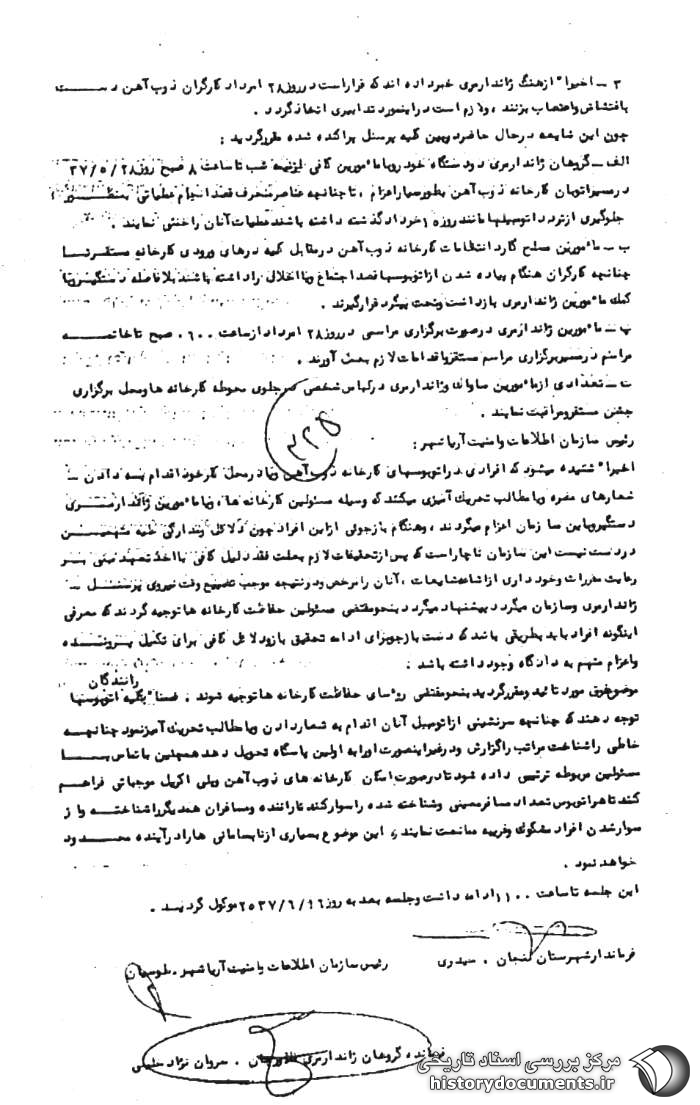 ۳ ـ اخیرا" از هنگ ژاندارمری خبر داده اند که قرار است در روز ۲۸ امرداد کارگران ذوب آهن دست
باغتشاش و اعتصاب بزنند ، و لازم است در اینمورد تدابیری اتخاذ گردد .
چون این شایعه در حال حاضر در بین کلیه پرسنل پراکنده شده مقرر گردید :
الف ـ گروهان ژاندارمری دو دستگاه خودرو با مامورین کافی از نیمه شب تا ساعت ۸ صبح روز ۳۷/۵/۲۸
در مسیر اتوبان کارخانه ذوب آهن بطور سیار اعزام ، تا چنانچه عناصر منحرف قصد انجام عملیاتی بمنظور
جلوگیری از تردد اتومبیلها مانند روز ۱۵ خرداد گذشته داشته باشند عملیات آنان را خنثی نمایند .
ب ـ مامورین مسلح گارد انتظامات کارخانه ذوب آهن در مقابل کلیه درهای ورودی کارخانه مستقر تا
چنانچه کارگران هنگام پیاده شدن از اتوبوسها قصد اجتماع و یا اخلالی را داشته باشند بلافاصله دستگیر و با
کمک مامورین ژاندارمری بازداشت و تحت پیگرد قرار گیرند .
پ ـ مامورین ژاندارمری در صورت برگزاری مراسمی در روز ۲۸ امرداد از ساعت ۰۶۰۰ صبح تا خاتمه
مراسم در مسیر برگزاری مراسم مستقر و اقدامات لازم بعمل آورند .
ت ـ تعدادی از مامورین ساواک و ژاندارمری در لباس شخصی در جلوی محوطه کارخانه ها و محل برگزاری
جشن مستقر و مراقبت نمایند .
رئیس سازمان اطلاعات و امنیت آریاشهر :
اخیرا" شنیده میشود که افرادی در اتوبوسهای کارخانه ذوب آهن و یا در محل کار خود اقدام به دادن ـ
شعارهای مضره و یا مطالب تحریک آمیزی میکنند که وسیله مسئولین کارخانه ها ، و یا مامورین ژاندارمری
دستگیر و باین سازمان اعزام میگردند ، و هنگام بازجوئی از این افراد چون دلائل و مدارکی علیه متهمین
در دست نیست این سازمان ناچار است که پس از تحقیقات لازم بعلت فقد دلیل کافی با اخذ تعهد مبنی بر
رعایت مقررات و خودداری از اشاعه شایعات ، آنان را مرخص و در نتیجه موجب تضییع وقت نیروی پرسنل ـ
ژاندارمری و سازمان میگردد پیشنهاد میگردد بنحو مقتضی مسئولین حفاظت کارخانه ها توجیه گردند که معرفی
اینگونه افراد باید بطریقی باشد که دست بازجو برای ادامه تحقیق باز و دلائل کافی برای تکمیل پرونده
و اعزام متهم به دادگاه وجود داشته باشد .
رانندگان
موضوع فوق مورد تائید و مقرر گردید بنحو مقتضی روسای حفاظت کارخانه ها توجیه شوند ، ضمنا" بکلیه اتوبوسها
توجه دهند که چنانچه سرنشینی از اتومبیل آنان اقدام به شعار دادن و یا مطالب تحریک آمیز نمود چنانچه
خاطی را شناخت مراتب را گزارش و در غیر اینصورت او را به اولین پاسگاه تحویل دهد همچنین با تماس با
مسئولین مربوطه ترتیبی داده شود تا در صورت امکان کارخانه های ذوب آهن و پلی اکریل موجباتی فراهم
کنند تا هر اتوبوس تعداد مسافر معینی و شناخته شده را سوار کند تا راننده و مسافران همدیگر را شناخته و از
سوار شدن افراد مشکوک و غریبه ممانعت نمایند ، این موضوع بسیاری از نابسامانی ها را در آینده محدود
خواهد نمود .
این جلسه تا ساعت ۱۱۰۰ ادامه داشت و جلسه بعد به روز ۲۵۳۷/۶/۱۶ موکول گردید .
۲۲۵
فرماندار شهرستان لنجان . سیدری
رئیس سازمان اطلاعات و امنیت آریاشهر . طوسیان
فرمانده گروهان ژاندارمری . سروان نژاد
مرکز بررسی اسناد تاریخی
historydocuments.ir